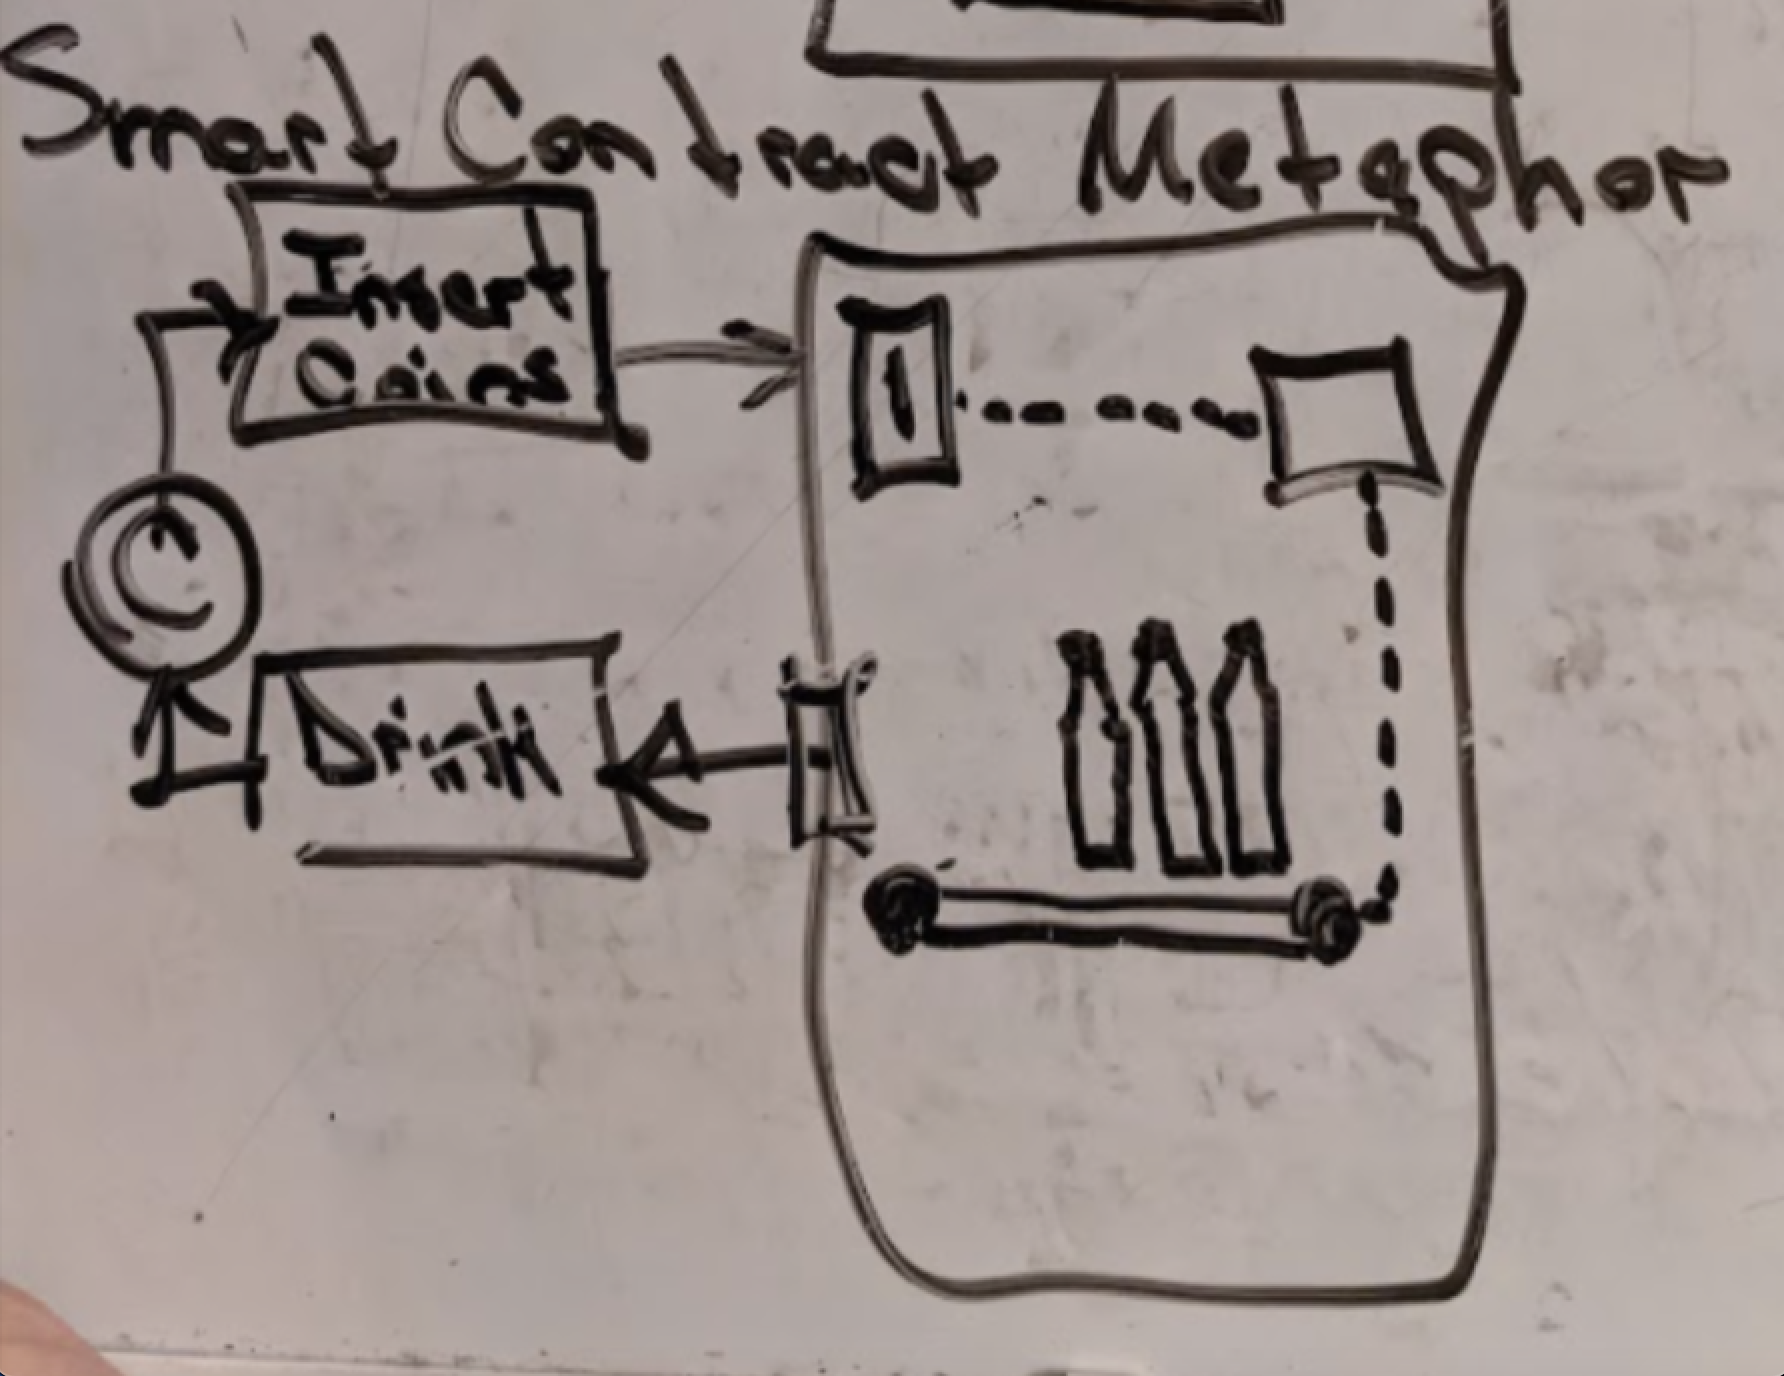 Smart Contract Metaphor
Insert
Coins
C
Drink